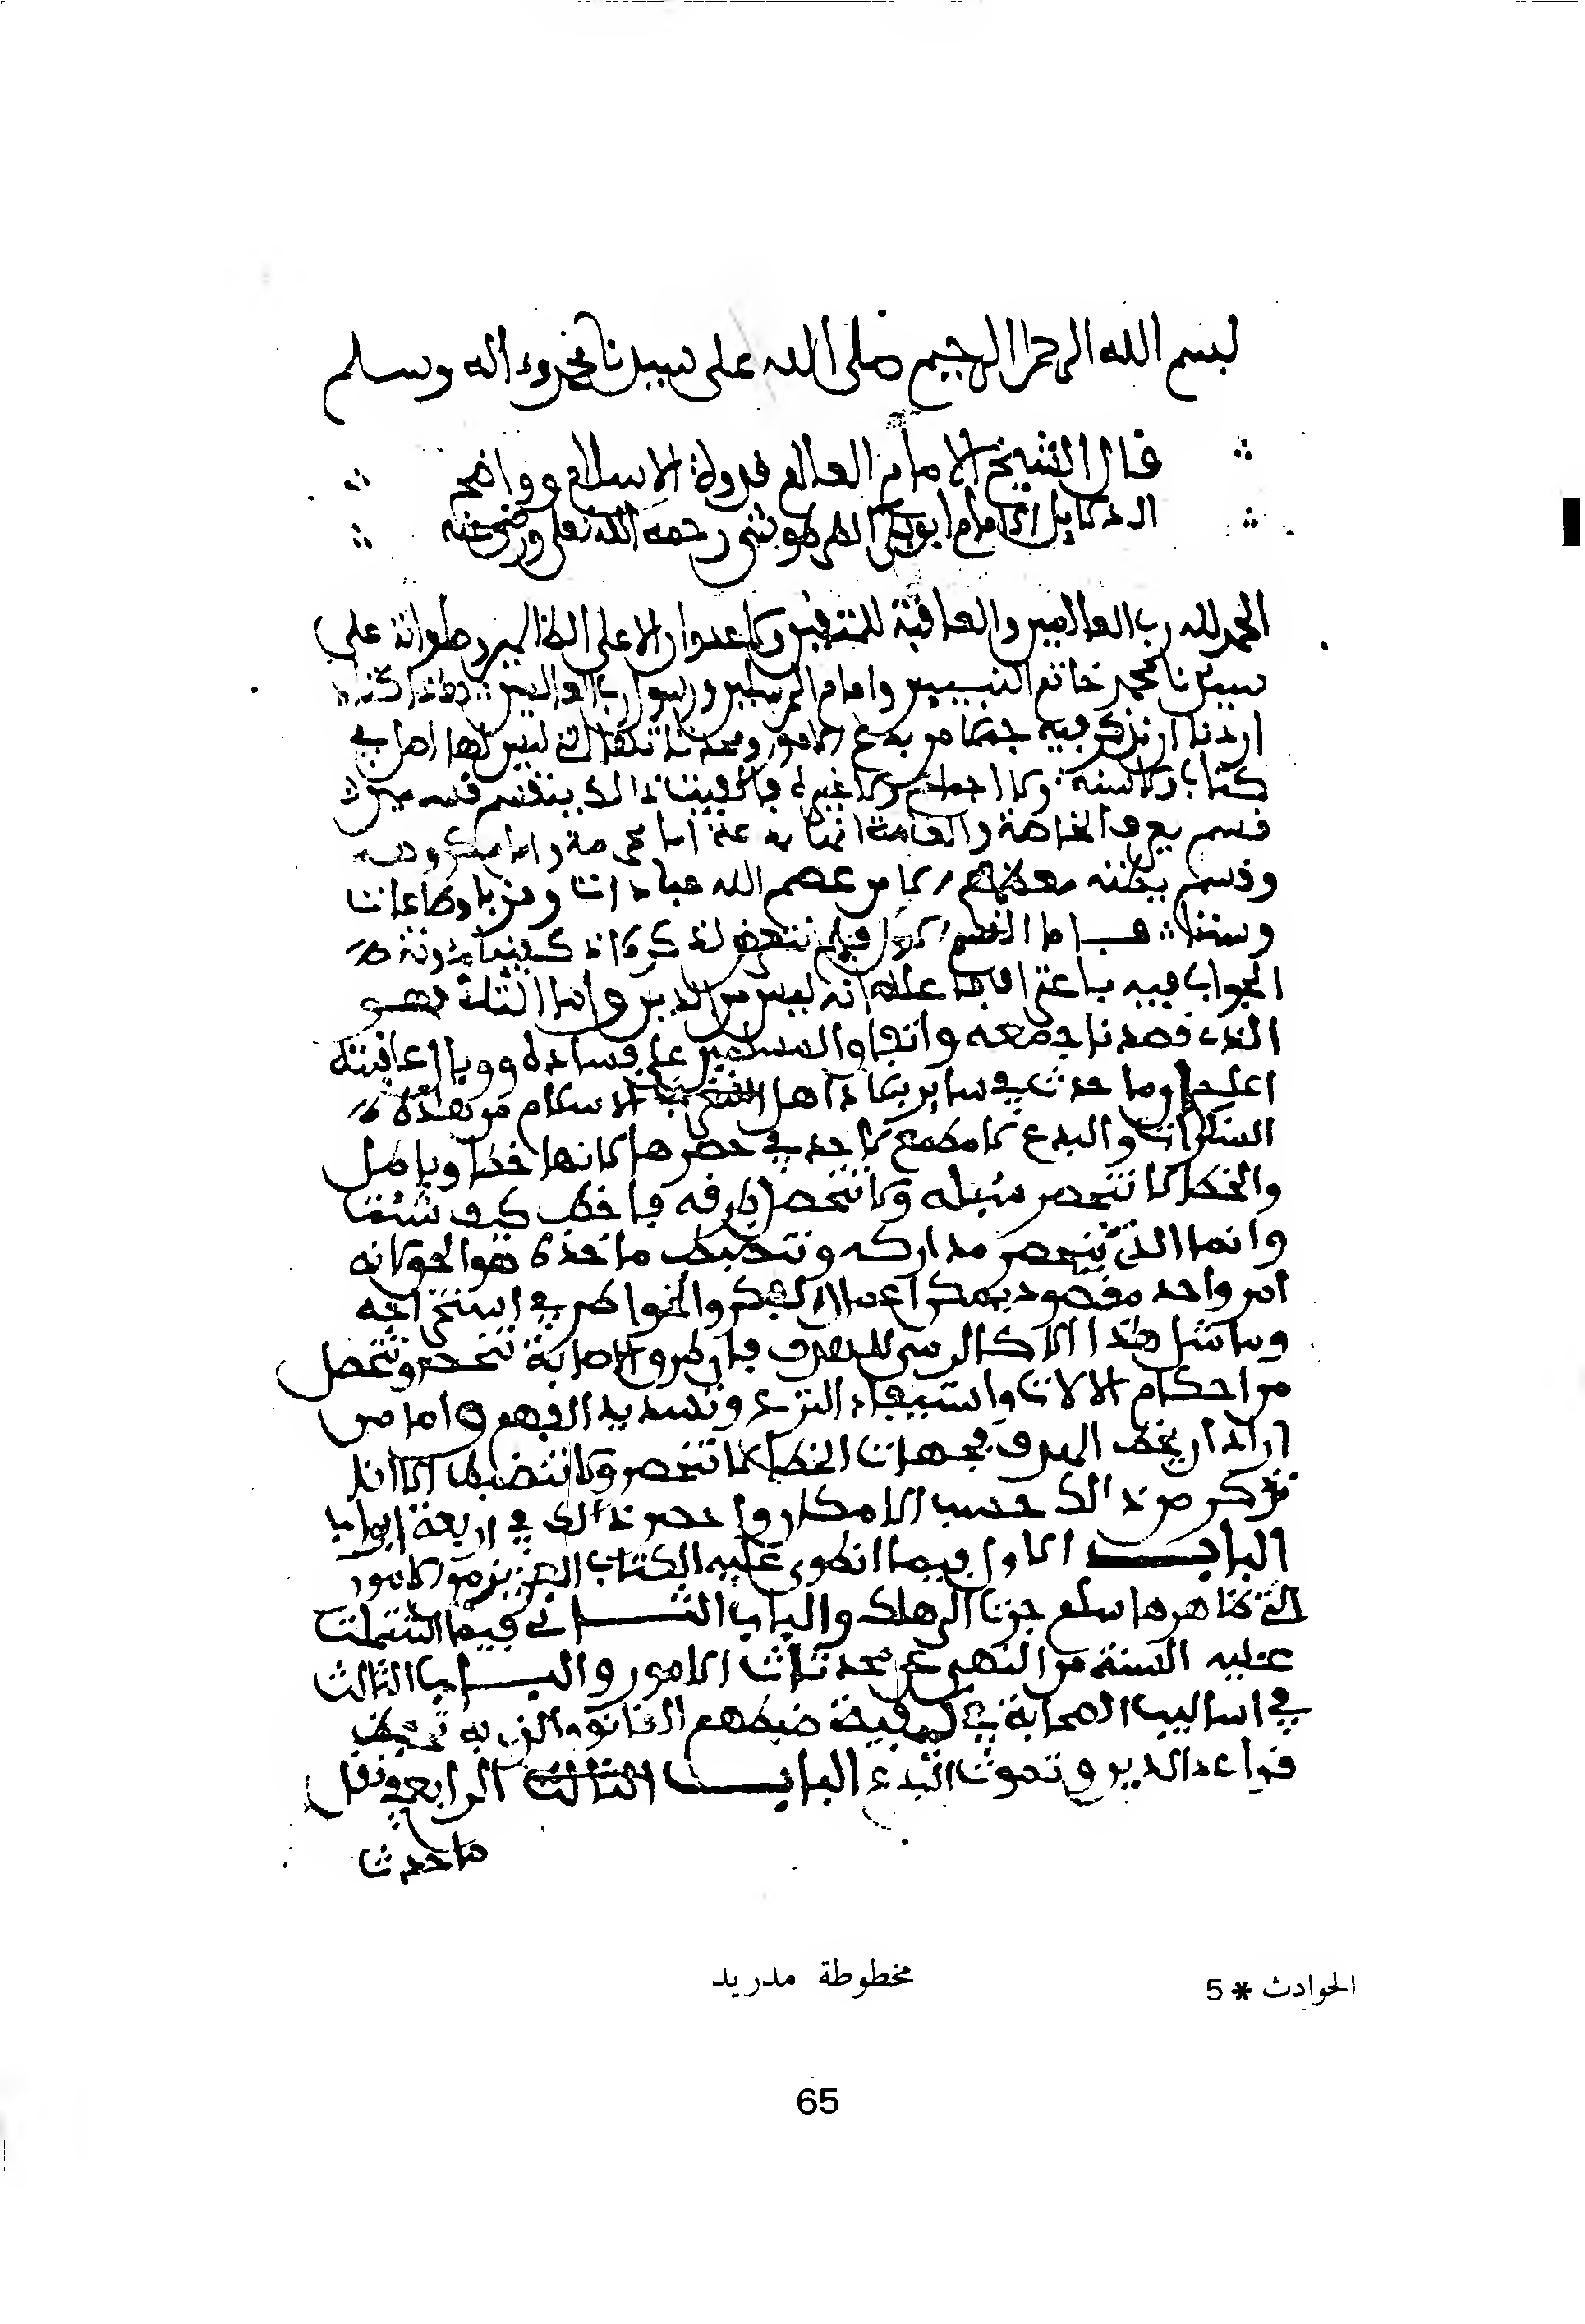 بسم الله الرحمن الرحيم صلى الله على سيدنا محمد وءاله وسلم
قال الشيخ الامام العالم قدوة الاسلام وواضح
الدلايل الامام ابو بكر الطرطوشي رحمه الله تعلى ورضي عنه
الحمد لله رب العالمين والعاقبة للمتقين ولا عدوان الا على الظالمين وصلواته على
سيدنا محمد خاتم النبيين وامام المرسلين ورسول رب العالمين هذا كتاب
اردنا ان نذكر فيه جملا من بدع الامور ومحدثاتها التي ليس لها اصل في
كتاب ولا سنة ولا اجماع ولا غيره فالفيت ذالك ينقسم قسمين
قسم يعرف الخاصة والعامة انها بدعة اما محرمة واما مكروهه
وقسم يظنه معظمهم الا من عصم الله عبادات وقربا وطاعات
وسننا فاما القسم الاول فلم نتعرض لذكره اذ كفينا مؤونة
الجواب فيه باعتراف فاعله انه ليس من الدين واما الثاني فهو
الذي قصدنا جمعه وانقاو المسلمين على فساده ووبال عاقبته
اعلم وما حدث في ساير بلاد اهل الاسلام من هذه
المنكرات والبدع لا مطمع لاحد في حصرها لانها خطا وباطل
والخطا لا تنحصر سبله ولا تتحصل طرقه فاخط كيف شئت
وانما الذي تنحصر مداركه وتنضبط ماخذه هو الحق لانه
امر واحد مقصود يمكن اعمال الفكر والخواطر في استخراجه
وما مثال هذا الا كالرمي للهدف فان طرق الاصابة تنحصر وتتحصل
من احكام الالات واستيفاء النزع وتسديد الفهم واما من
اراد ان يخطي الهدف فجهات الخطا لا تنحصر ولا تنضبط الا انا
نذكر من ذالك حسب الامكان واحصر ذالك في اربعة ابواب
الباب الاول فيما انطوى عليه الكتاب العزيز من الامور
التي ظاهرها سلم جرت الى هلك والباب الثاني فيما اشتملت
عليه السنة من النهي عن محدثات الامور والباب الثالث
في اساليب الصحابة في كيفية ضبطهم القانون الذي به تحفظ
قواعد الدين وتموت البدع الباب الثالث الرابع في نقل
ما حدث
مخطوطة مدريد
الحوادث * 5
65